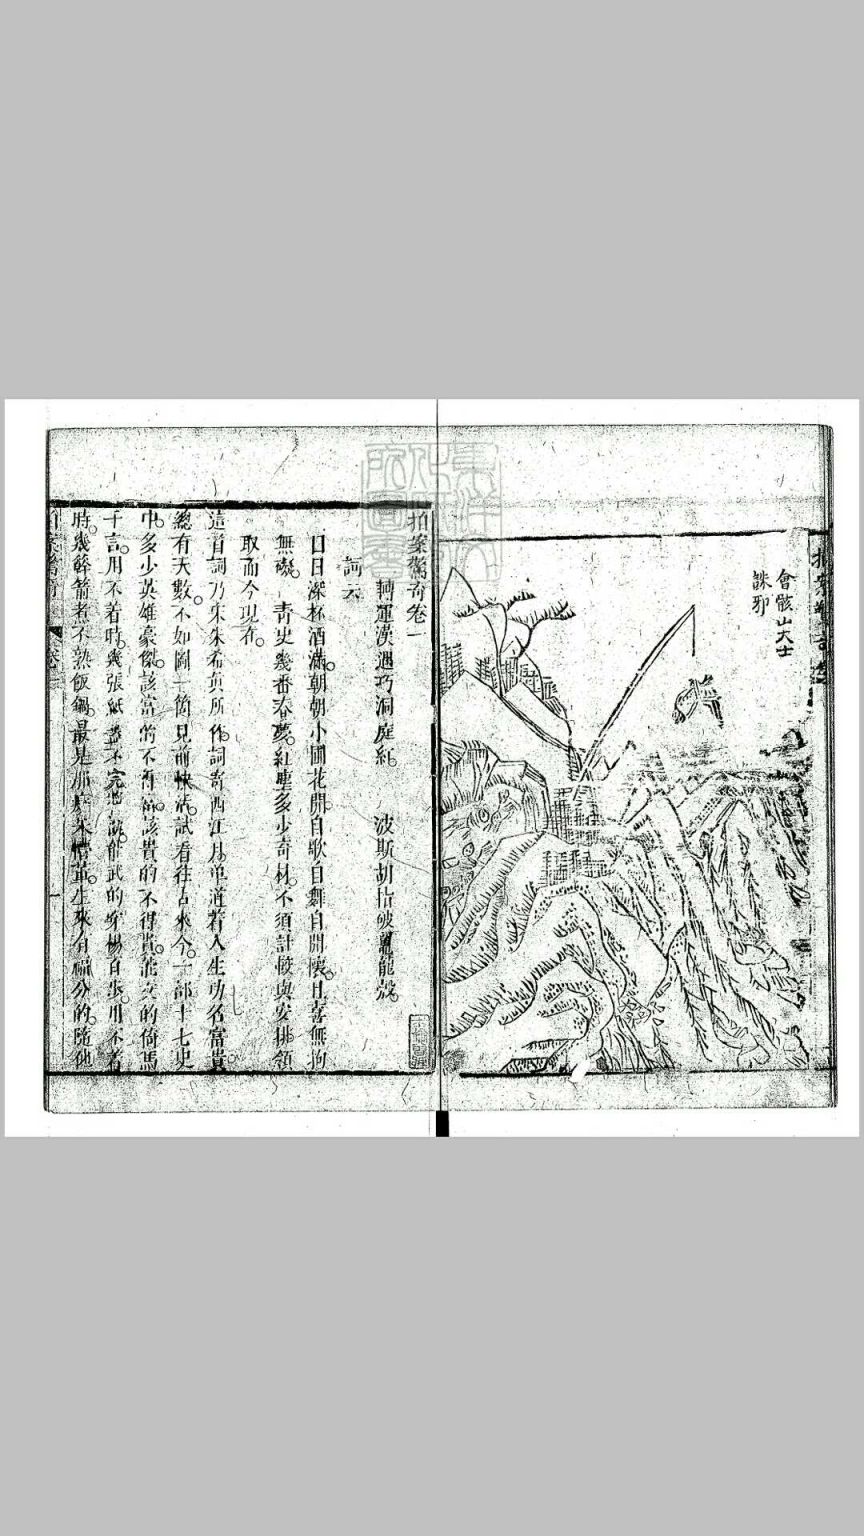 會骸山大士
誅邪
拍案驚奇卷一
轉運漢遇巧洞庭紅 波斯胡指破鼉龍殼
詞云
日日深杯酒滿朝朝小圃花開自歌自舞自開懷且喜無拘
無礙 青史幾番春夢紅塵多少奇材不須計較與安排領
取而今現在
這首詞乃宋朱希真所作詞寄西江月單道着人生功名富貴
總有天數不如圖一箇見前快活試看往古來今一部十七史
中多少英雄豪傑該富的不得富該貴的不得貴能文的倚馬
千言用不着時幾張紙蓋不完醬瓿能武的穿楊百步用不着
時幾簳箭煮不熟飯鍋最是那癡呆懵董生來有福分的隨他